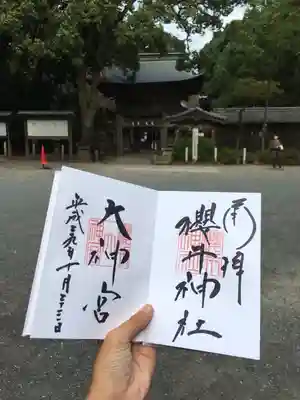 奉拝
櫻井神社
大神宮
平成二九年十一月二十三日